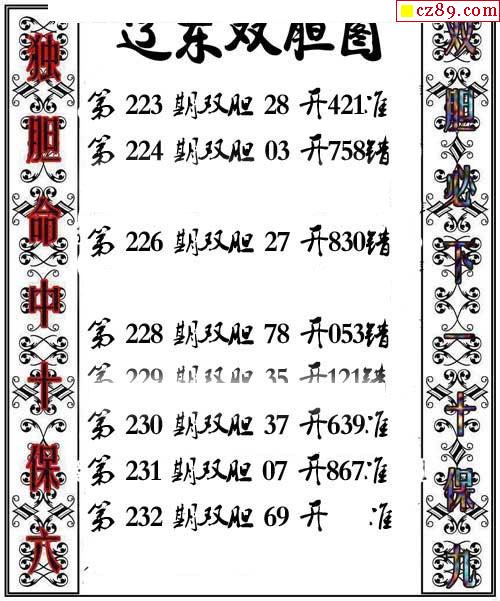 cz89.com
辽东双胆图
独胆命中十保六
双胆必下一十保九
第 223 期双胆 28 开421准
第 224 期双胆 03 开758错
第 226 期双胆 27 开830错
第 228 期双胆 78 开053错
第 229 期双胆 35 开121错
第 230 期双胆 37 开639准
第 231 期双胆 07 开867准
第 232 期双胆 69 开 准